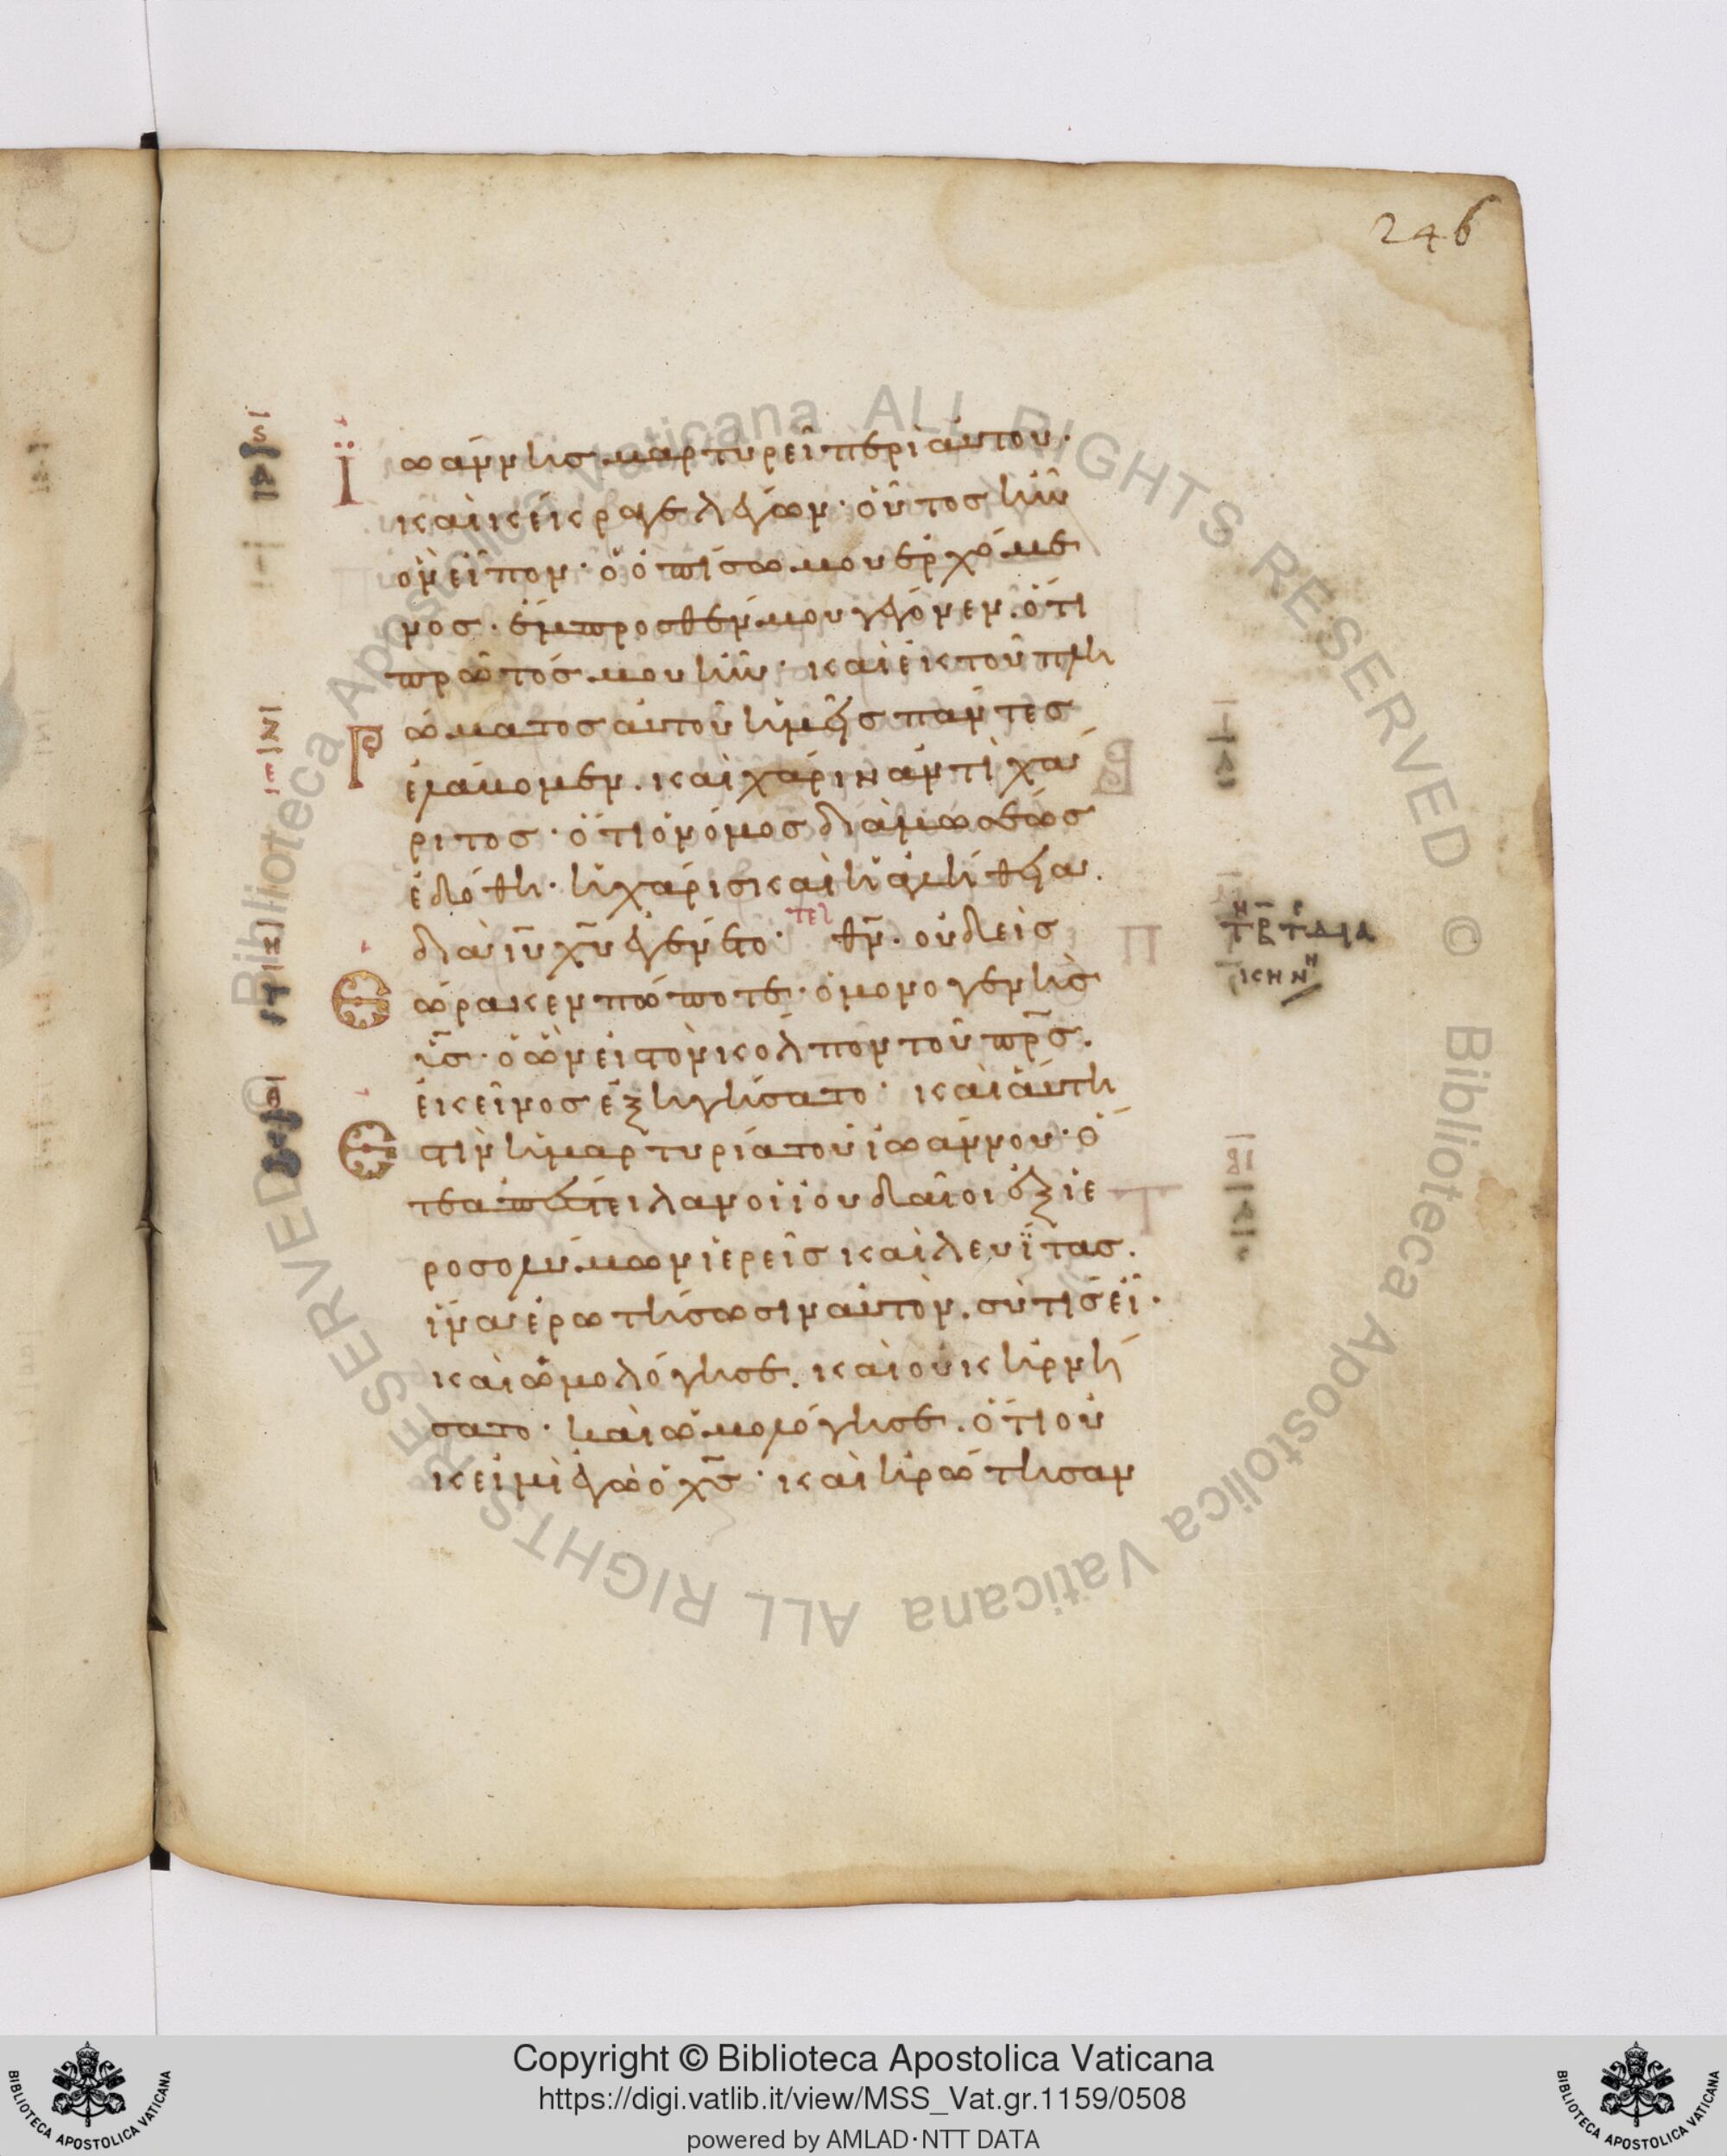 246
Ἰωάννης μαρτυρεῖ περὶ αὐτοῦ·
καὶ κέκραγε λέγων· οὗτος ἦν
ὃν εἶπον· ὁ ὀπίσω μου ἐρχόμε
νος· ἔμπροσθέν μου γέγονεν. ὅτι
πρῶτός μου ἦν· καὶ ἐκ τοῦ πλη
ρώματος αὐτοῦ ἡμεῖς πάντες
ἐλάβομεν. καὶ χάριν ἀντὶ χά
ριτος· ὅτι ὁ νόμος διὰ μωσέως
ἐδόθη· ἡ χάρις καὶ ἡ ἀλήθεια.
διὰ ἰυ χυ ἐγένετο· τελ θν. οὐδεὶς
ἑώρακεν πώποτε· ὁ μονογενὴς
υς· ὁ ὢν εἰς τὸν κόλπον τοῦ πρς.
ἐκεῖνος ἐξηγήσατο· καὶ αὕτη
ἐστὶν ἡ μαρτυρία τοῦ ἰωάννου· ὅ
τε ἀπέστειλαν οἱ ἰουδαῖοι ἐξ ἱε
ροσολύμων ἱερεῖς καὶ λευΐτας.
ἵνα ἐρωτήσωσιν αὐτόν. σὺ τίς εἶ·
καὶ ὡμολόγησε. καὶ οὐκ ἠρνή
σατο· καὶ ὡμολόγησε. ὅτι οὐ
κ εἰμὶ ἐγὼ ὁ χς· καὶ ἠρώτησαν
Copyright © Biblioteca Apostolica Vaticana
https://digi.vatlib.it/view/MSS_Vat.gr.1159/0508
powered by AMLAD·NTT DATA
BIBLIOTECA APOSTOLICA VATICANA
BIBLIOTECA APOSTOLICA VATICANA